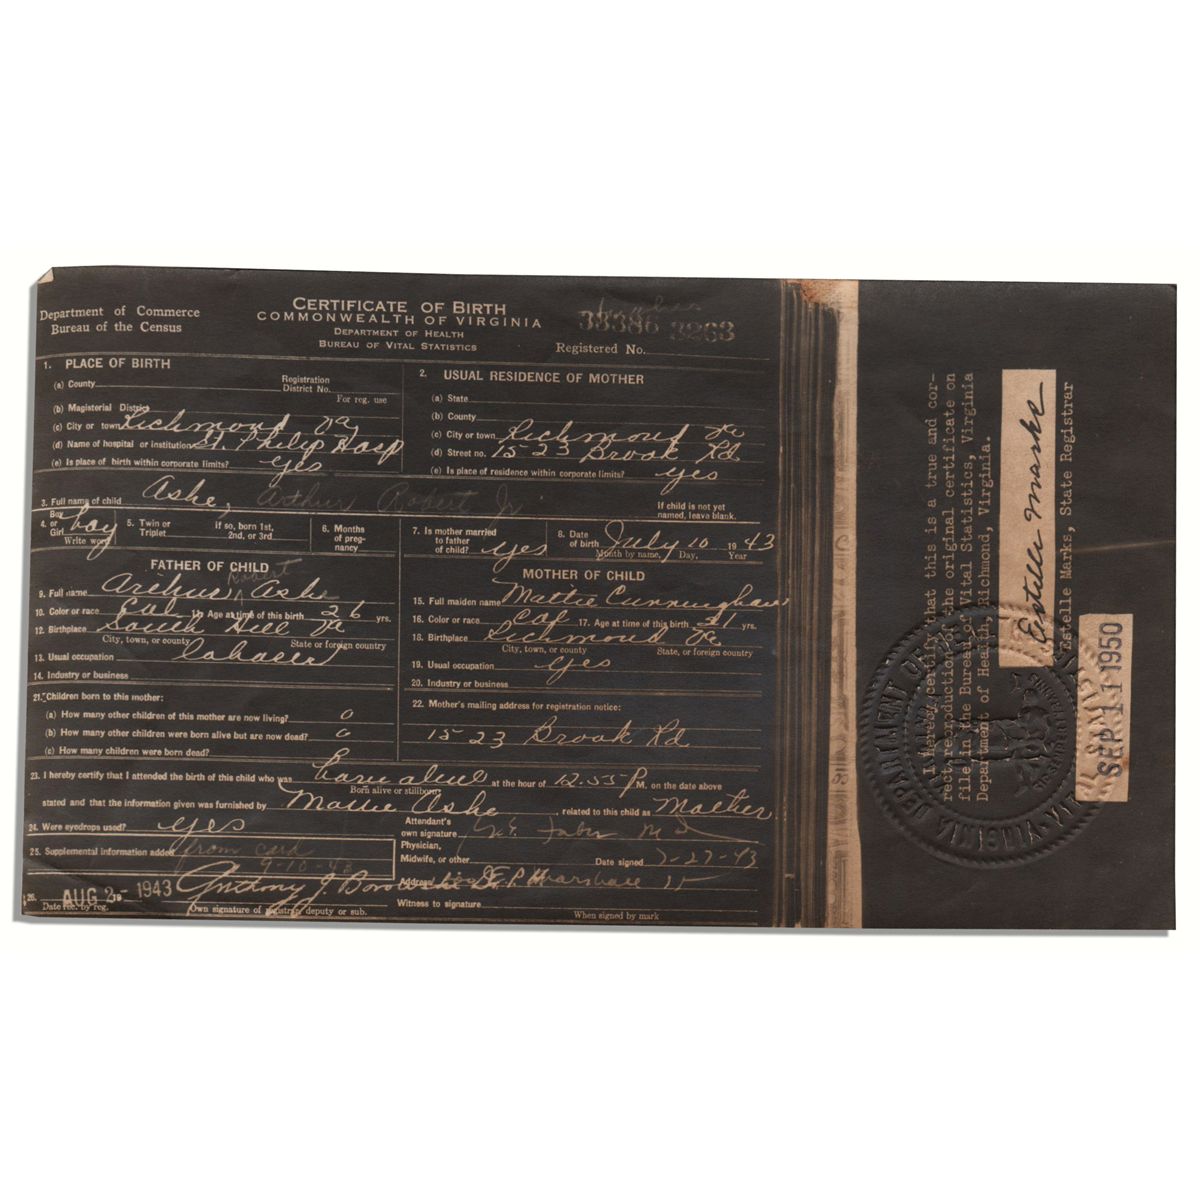 Department of Commerce
Bureau of the Census
CERTIFICATE OF BIRTH
COMMONWEALTH OF VIRGINIA
DEPARTMENT OF HEALTH
BUREAU OF VITAL STATISTICS
33386 3263
Registered No.
1. PLACE OF BIRTH
(a) County
Registration District No.
For reg. use
(b) Magisterial District
(c) City or town Richmond Va
(d) Name of hospital or institution St. Philip Hosp
(e) Is place of birth within corporate limits? yes
2. USUAL RESIDENCE OF MOTHER
(a) State
(b) County
(c) City or town Richmond Va
(d) Street no. 1523 Brook Rd
(e) Is place of residence within corporate limits? yes
3. Full name of child Ashe, Arthur Robert Jr
If child is not yet named, leave blank.
4. Boy or Girl boy
Write word
5. Twin or Triplet
If so, born 1st, 2nd, or 3rd
6. Months of pregnancy
7. Is mother married to father of child? yes
8. Date of birth July 10 1943
Month by name, Day, Year
FATHER OF CHILD
9. Full name Arthur Robert Ashe
10. Color or race Col 11. Age at time of this birth 26 yrs.
12. Birthplace South Hill Va
City, town, or county State or foreign country
13. Usual occupation
14. Industry or business
MOTHER OF CHILD
15. Full maiden name Mattie Cunningham
16. Color or race Col 17. Age at time of this birth 21 yrs.
18. Birthplace Richmond Va
City, town, or county State, or foreign country
19. Usual occupation yes
20. Industry or business
21. Children born to this mother:
(a) How many other children of this mother are now living? 0
(b) How many other children were born alive but are now dead? 0
(c) How many children were born dead?
22. Mother's mailing address for registration notice:
1523 Brook Rd
23. I hereby certify that I attended the birth of this child who was born alive at the hour of 12.55 P M. on the date above
Born alive or stillborn
stated and that the information given was furnished by Mattie Ashe, related to this child as Mother
24. Were eyedrops used? yes
Attendant's own signature M D
Physician, Midwife, or other
Date signed 7-27-43
25. Supplemental information added from card
9-10-43
Address E. Marshall St
26. AUG 2 1943
Date rec. by reg.
Anthony J.
Own signature of registrar, deputy or sub.
Witness to signature
When signed by mark
I hereby certify that this is a true and cor-
rect reproduction of the original certificate on
file in the Bureau of Vital Statistics, Virginia
Department of Health, Richmond, Virginia.
Estelle Marks
Estelle Marks, State Registrar
SEP 11 1950